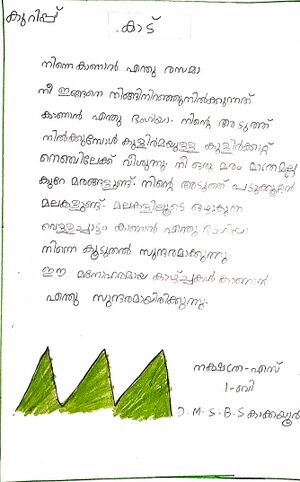 കുറിപ്പ്
കാട്
നിന്നെ കാണാൻ എന്തു രസമാ
നീ ഇങ്ങനെ തിങ്ങിനിറഞ്ഞുനിൽക്കുന്നത്
കാണാൻ എന്തു ഭംഗിയാ. നിന്റെ അടുത്ത്
നിൽക്കുമ്പോൾ കുളിർമയുള്ള കുളിർക്കാറ്റ്
നെഞ്ചിലേക്ക് വീശുന്നു. നീ ഒരു മരം മാത്രമല്ല
കുറേ മരങ്ങളുണ്ട്. നിന്റെ അടുത്ത് പടുക്കൂറ്റൻ
മലകളുണ്ട്. മലകളിലൂടെ ഒഴുകുന്ന
വെള്ളച്ചാട്ടം കാണാൻ എന്തു ഭംഗിയാ
നിന്നെ കൂടുതൽ സുന്ദരമാക്കുന്നു
ഈ മനോഹരമായ കാഴ്ച്ചകൾ കാണാൻ
എന്തു സുന്ദരമായിരിക്കുന്നു.
നക്ഷത്ര-എസ്
1-ബി
D.M.S.B.S കാക്കയൂർ